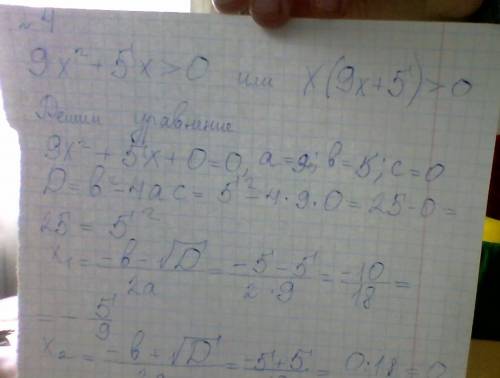 №4
9x² + 5x > 0 или x(9x+5) > 0
Решим уравнение
9x² + 5x + 0 = 0, a = 9; b = 5; c = 0
D = b² - 4ac = 5² - 4·9·0 = 25 - 0 =
25 = 5²
x₁ = (-b - √D)/2a = (-5 - 5)/(2·9) = -10/18 =
= - 5/9
x₂ = (-b + √D)/2a = (-5 + 5) = 0:18 = 0